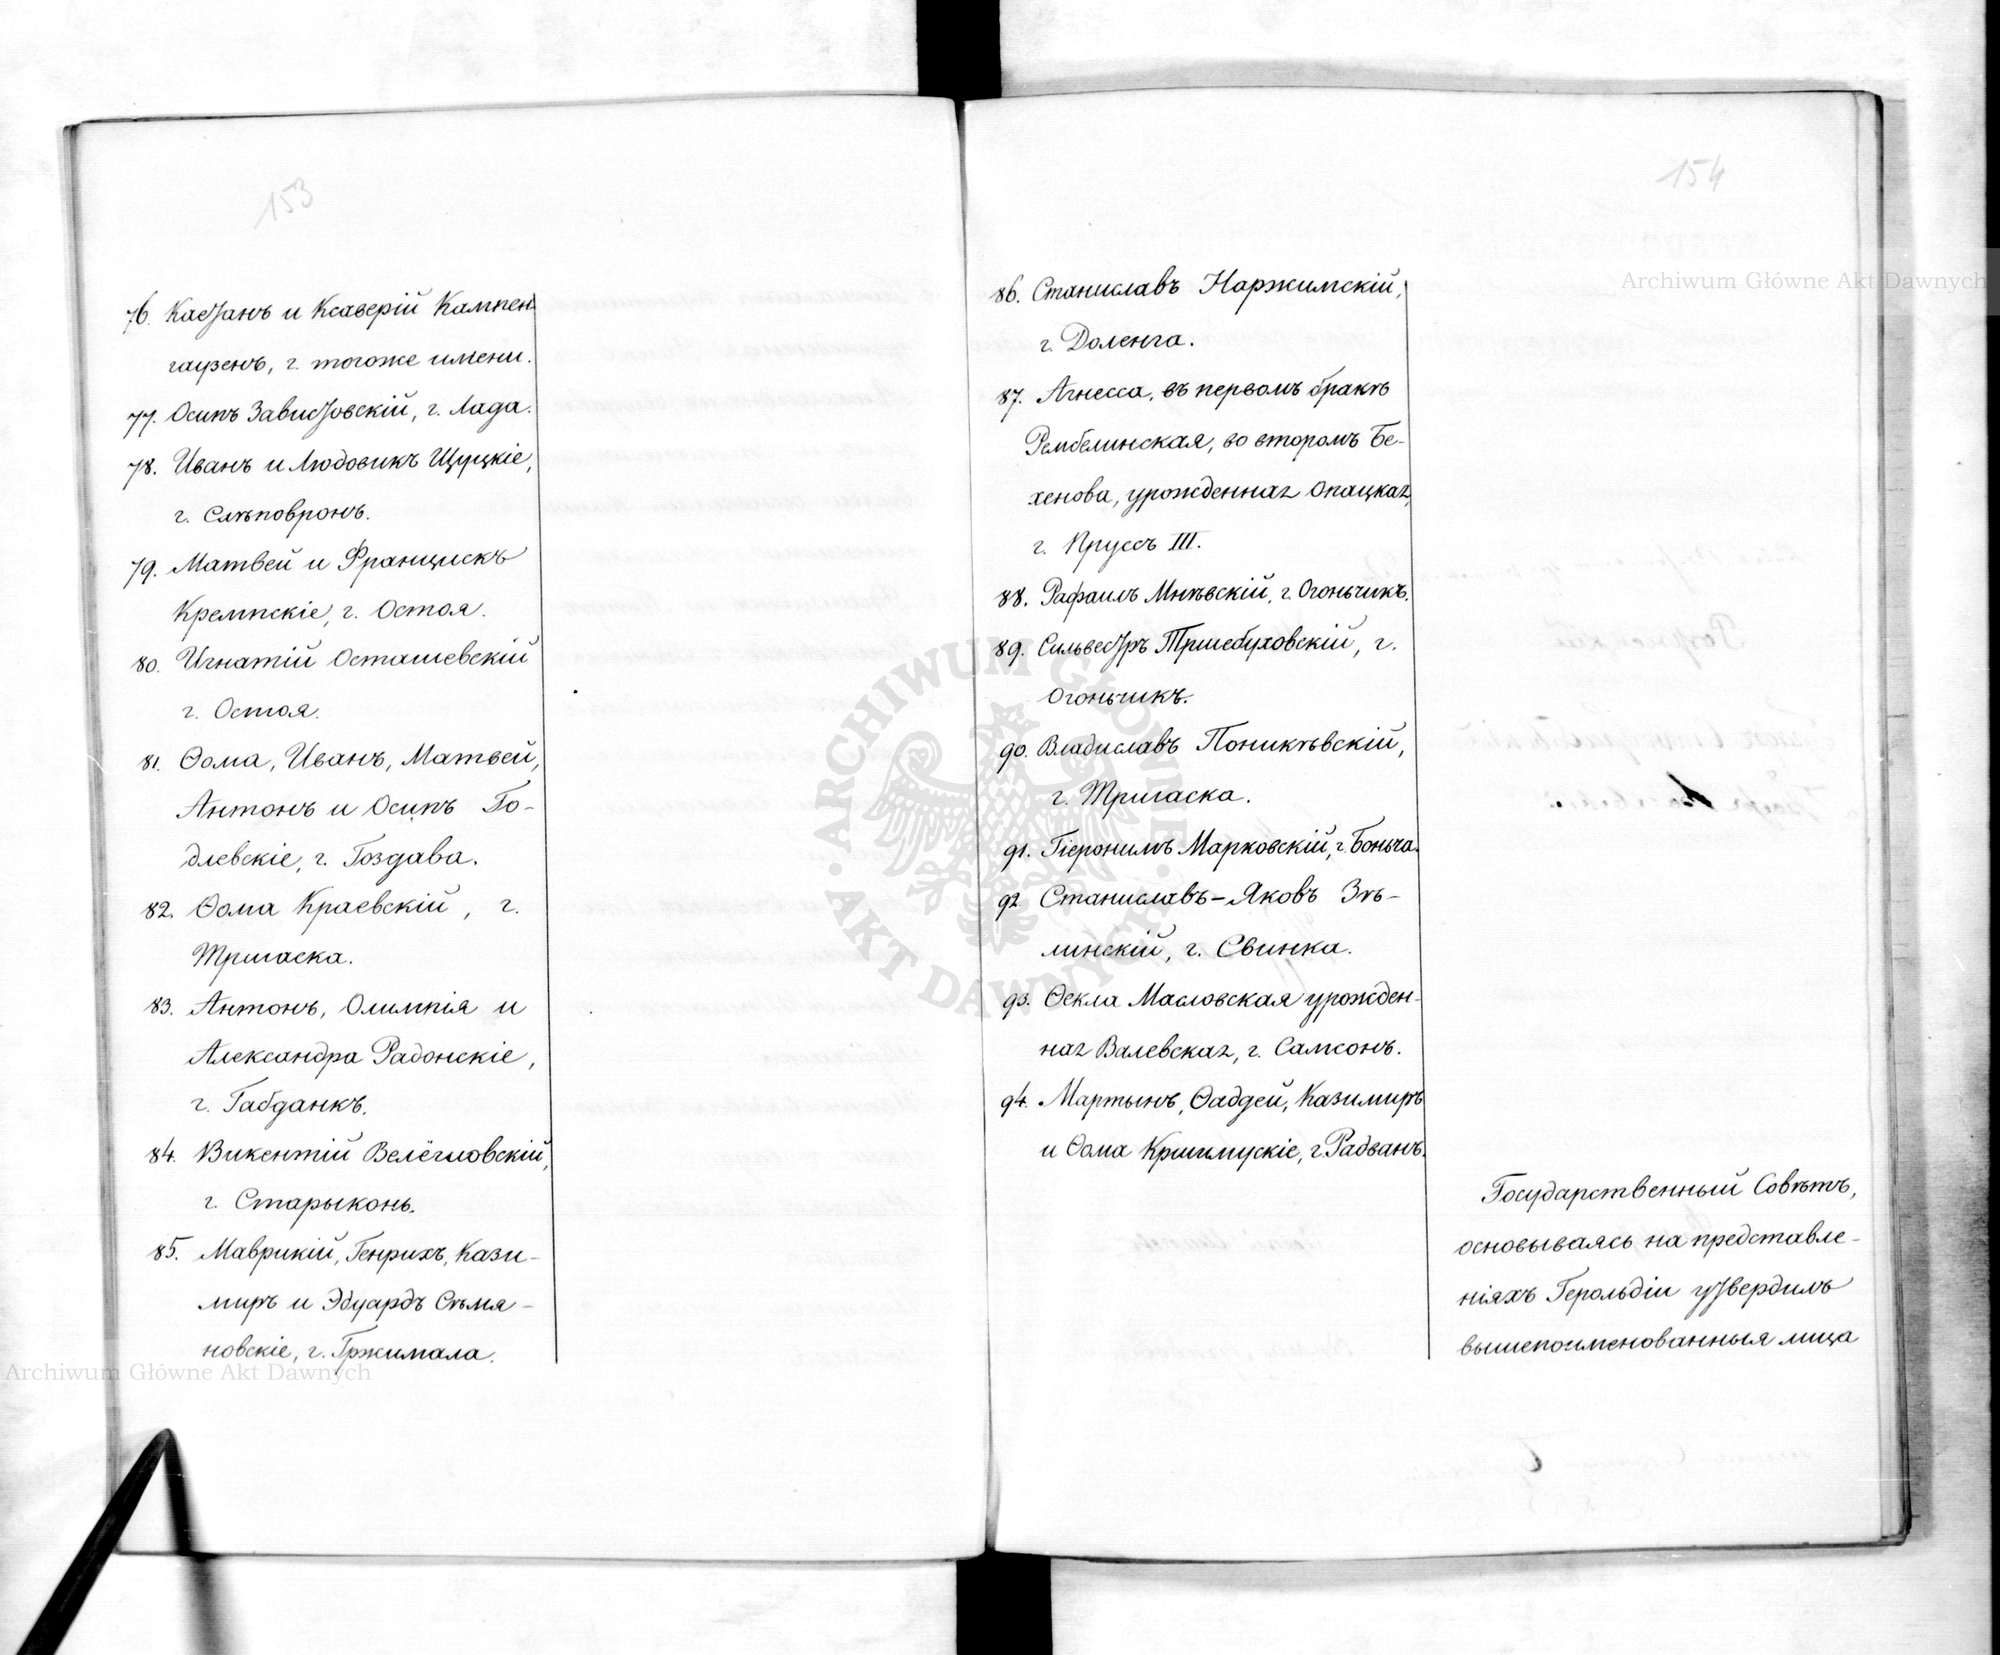 153
76. Каэтанъ и Ксаверій Кампен-
гаузенъ, г. тогоже имени.
77. Осипъ Завистовскій, г. Лада.
78. Иванъ и Людовикъ Щуцкіе,
г. Слѣповронъ.
79. Матвей и Францискъ
Кремпскіе, г. Остоя.
80. Игнатій Осташевскій
г. Остоя.
81. Ѳома, Иванъ, Матвей,
Антонъ и Осипъ Го-
длевскіе, г. Гоздава.
82. Ѳома Краевскій, г.
Тршаска.
83. Антонъ, Олимпія и
Александра Радонскіе,
г. Габданкъ.
84. Викентій Велёгловскій,
г. Старыконь.
85. Маврикій, Генрихъ, Кази-
миръ и Эдуардъ Сѣмя-
новскіе, г. Гржимала.
154
86. Станиславъ Наржимскій,
г. Доленга.
87. Агнесса, въ первомъ бракѣ
Рембелинская, во второмъ Бе-
хенова, урожденная Опацкая,
г. Пруссъ III.
88. Рафаилъ Мнѣвскій, г. Огоньчикъ.
89. Сильвестръ Тршебуховскій, г.
Огоньчикъ.
90. Владиславъ Поникѣвскій,
г. Тршаска.
91. Гіеронимъ Марковскій, г. Боньча.
92. Станиславъ-Яковъ Зѣ-
линскій, г. Свинка.
93. Ѳекла Масловская урожден-
ная Валевская, г. Самсонъ.
94. Мартынъ, Ѳаддей, Казимиръ
и Ѳома Кршимускіе, г. Радванъ.
Государственный Совѣтъ,
основываясь на представле-
ніяхъ Герольдіи утвердилъ
вышепоименованныя лица
Archiwum Główne Akt Dawnych
Archiwum Główne Akt Dawnych
ARCHIWUM GŁÓWNE
AKT DAWNYCH